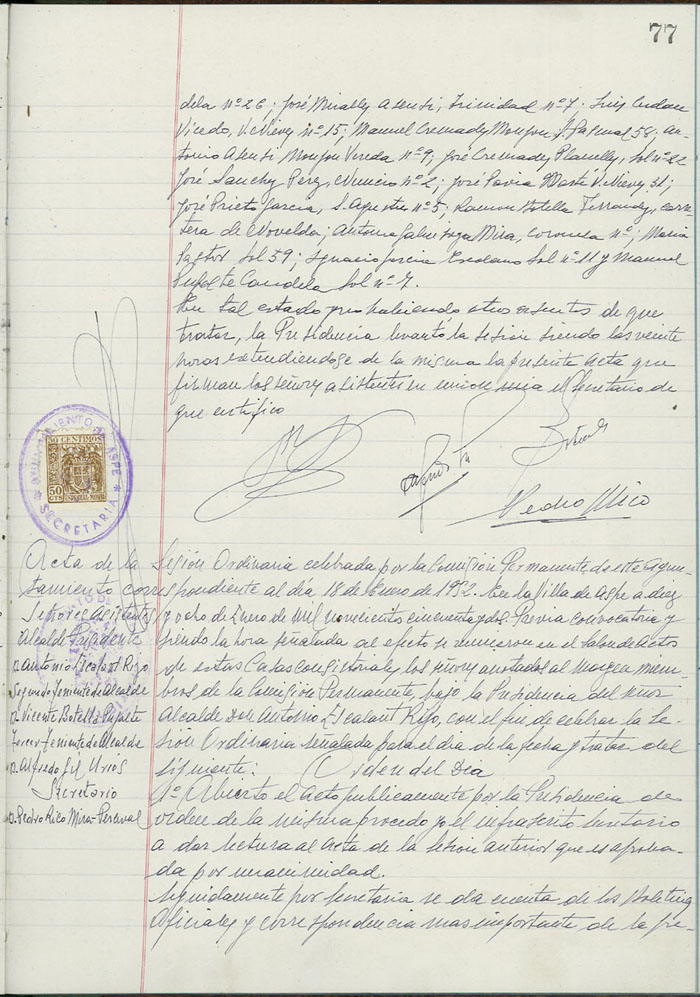 77
dela nº 26; José Miralles Asensi, Trinidad nº 7. Luis Cerdan
Vicedo, V. Nievs nº 15; Manuel Cremades Monzon, S. Pascual 58; An-
tonio Asensi Monzon Vereda nº 9; José Cremades Planelles, Sol nº 22
José Sanchez Perez, nº 2; José Pavia Marti V. Nieves 51;
José Prieto García, S. Agustin nº 5; Ramon Botella Ferrandez, carre-
tera de Novelda; Antonio Mira, Coronela nº; Maria
Pastor Sol 59; Ignacio Garcia Escolano Sol nº 11 y Manuel
Candela Sol nº 7.
En tal estado y no habiendo otros asuntos de que
tratar, la Presidencia levantó la sesión siendo las veinte
horas extendiendose de la misma la presente Acta que
firman los señores asistentes en union mia el Secretario de
que certifico
AYUNTAMIENTO DE ASPE
SECRETARIA
50 CENTIMOS
50 CTS
Pedro Rico
Acta de la Sesión Ordinaria celebrada por la Comisión Permanente de este Ayun-
tamiento correspondiente al día 18 de Enero de 1952. En la Villa de Aspe a diez
Señores Asistentes y ocho de Enero de mil novecientos cincuenta y dos. Previa convocatoria y
Alcalde Presidente siendo la hora señalada al efecto se reunieron en el Salon de Actos
D. Antonio Rizo de estas Casas Consistoriales los señores anotados al margen miem-
Segundo Teniente de Alcalde bros de la Comisión Permanente, bajo la Presidencia del Señor
D. Vicente Botella Alcalde Don Antonio Rizo, con el fin de celebrar la Se-
Tercer Teniente de Alcalde sión Ordinaria señalada para el dia de la fecha y tratar del
D. Alfredo Gil Urios siguiente: Orden del Dia
Secretario 1º Abierto el Acto publicamente por la Presidencia de
D. Pedro Rico Mira-Perceval orden de la misma procedo yo el infrascrito Secretario
a dar lectura al Acta de la sesión anterior que es aproba-
da por unanimidad.
Seguidamente por Secretaria se da cuenta de los Boletines
Oficiales y correspondencia mas importante de la pre-